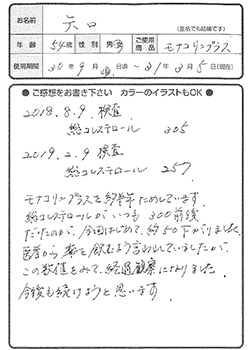 お名前 矢口 (匿名でも結構です)
年齢 54歳 性別 男・女 ご使用商品 モナコリンプラス
使用期間 30年9月 日頃 〜31年3月5日(現在)
●ご感想をお書き下さい カラーのイラストもOK●
2018.8.9 検査
総コレステロール 305
2019.2.9 検査
総コレステロール 257
モナコリンプラスを約半年ためしています。
総コレステロールがいつも300前後
だったのが、今回はじめて、約50下がりました。
医者から薬を飲むよう言われていましたが、
この数値をみて、経過観察になりました。
今後も続けようと思います。